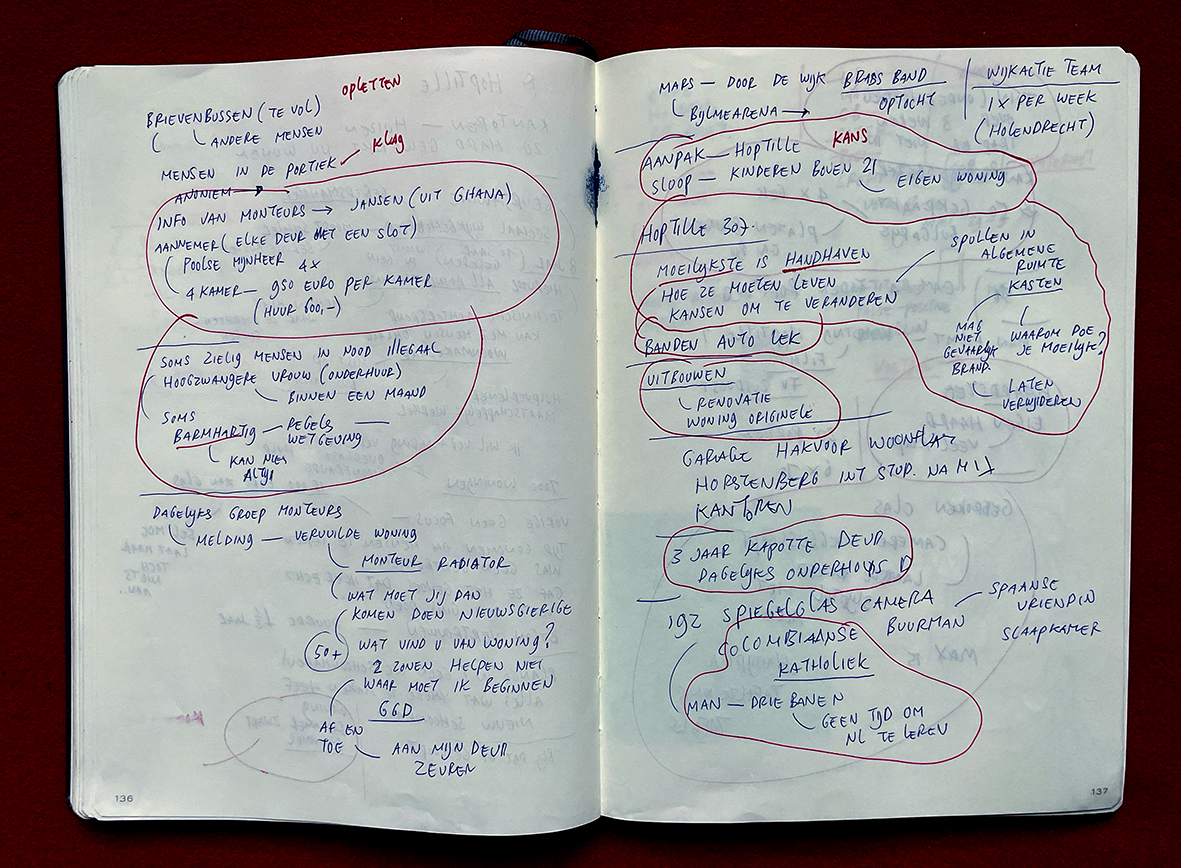 OPLETTEN
BRIEVENBUSSEN (TE VOL)
ANDERE MENSEN
KLAG
MENSEN IN DE PORTIEK
ANONIEM
INFO VAN MONTEURS → JANSEN (UIT GHANA)
AANNEMER (ELKE DEUR MET EEN SLOT)
POOLSE MIJNHEER 4X
4 KAMER — 950 EURO PER KAMER
(HUUR 600,-)
SOMS ZIELIG MENSEN IN NOOD ILLEGAAL
HOOGZWANGERE VROUW (ONDERHUUR)
BINNEN EEN MAAND
SOMS
BARMHARTIG — REGELS
WETGEVING
KAN NIET
ALTYD
DAGELYKS GROEP MONTEURS
MELDING — VERVUILDE WONING
MONTEUR RADIATOR
WAT MOET JIJ DAN
KOMEN DOEN NIEUWSGIERIGE
50+
WAT VIND U VAN WONING?
2 ZONEN HELPEN NIET
WAAR MOET IK BEGINNEN
GGD
AF EN
TOE
AAN MIJN DEUR
ZEUREN
136
MARS — DOOR DE WIJK BRABS BAND
OPTOCHT
BIJLMEARENA →
WIJKACTIE TEAM
1X PER WEEK
(HOLENDRECHT)
KANS
AANPAK — HOPTILLE
SLOOP — KINDEREN BOVEN 21
EIGEN WONING
HOPTILLE 307.
MOEILYKSTE IS HANDHAVEN
HOE ZE MOETEN LEVEN
KANSEN OM TE VERANDEREN
SPULLEN IN
ALGEMENE
RUIMTE
KASTEN
MAG
NIET
GEVAARLYK
BRAND.
WAAROM DOE
JE MOEILYK?
LATEN
VERWIJDEREN
BANDEN AUTO LEK
UITBOUWEN
RENOVATIE
WONING ORIGINELE
GARAGE HAKVOOR WOONFLAT
HORSTENBERG INT STUD. NA MIJ
KANTOREN
3 JAAR KAPOTTE DEUR
DAGELYKS ONDERHOUDS D
192 SPIEGELGLAS CAMERA
BUURMAN
SPAANSE
VRIENDIN
SLAAPKAMER
COLOMBIAANSE
KATHOLIEK
MAN — DRIE BANEN
GEEN TIJD OM
NL TE LEREN
137